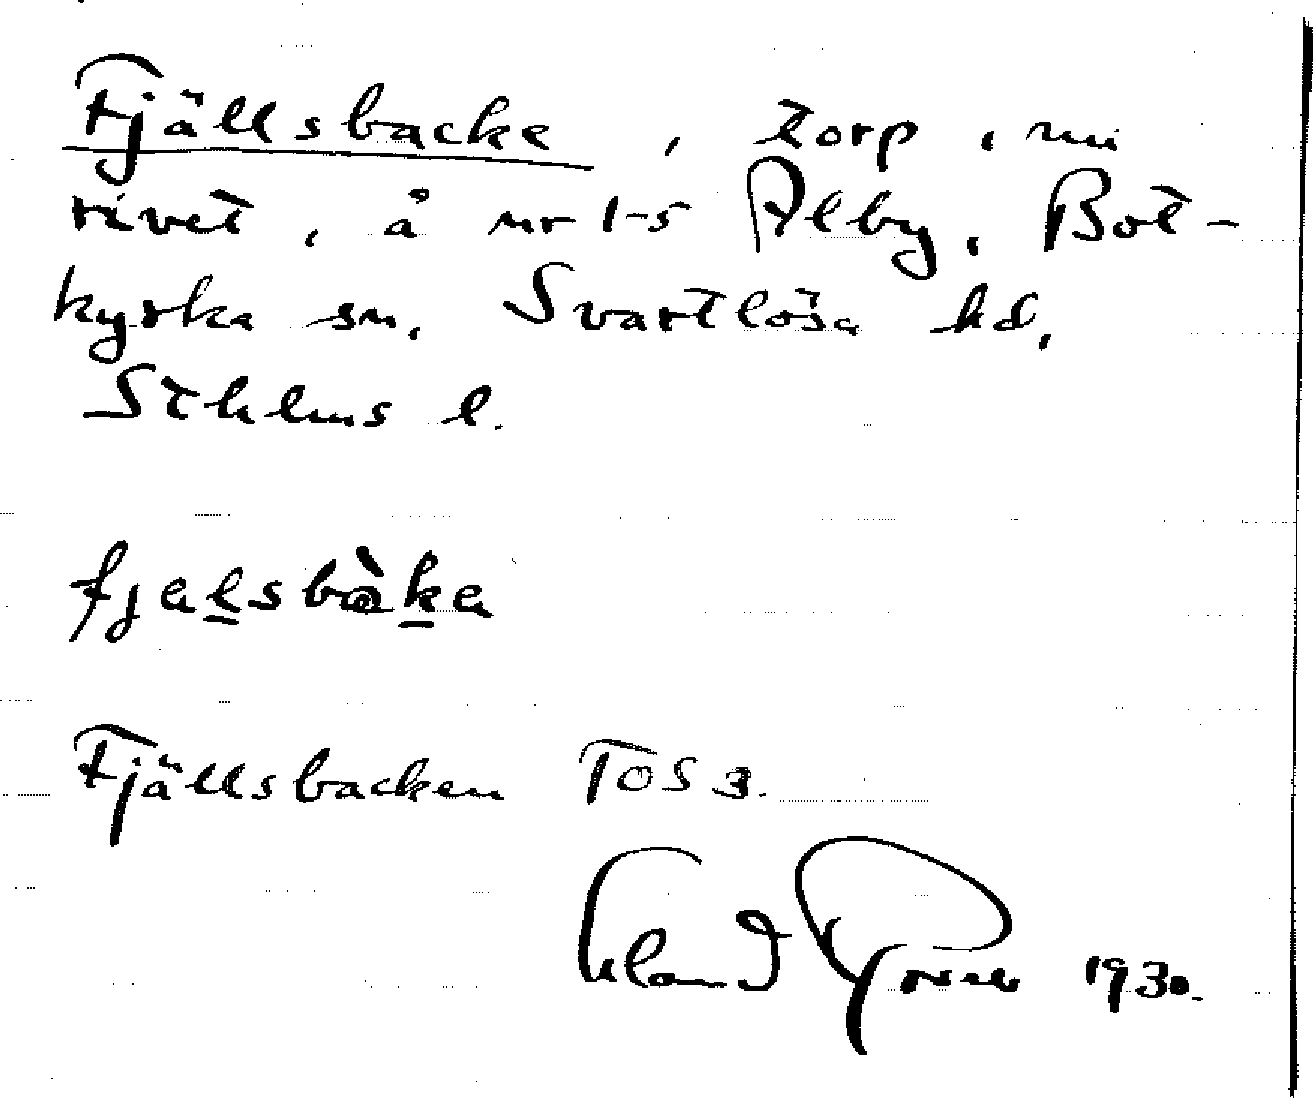 Fjällsbacke, torp, nu
rivet, å nr 1-5 Alby, Bot-
kyrka sn, Svartlösa hd,
Sthlms l.
fjalsbàka
Fjällsbacken TOS 3.
1930.